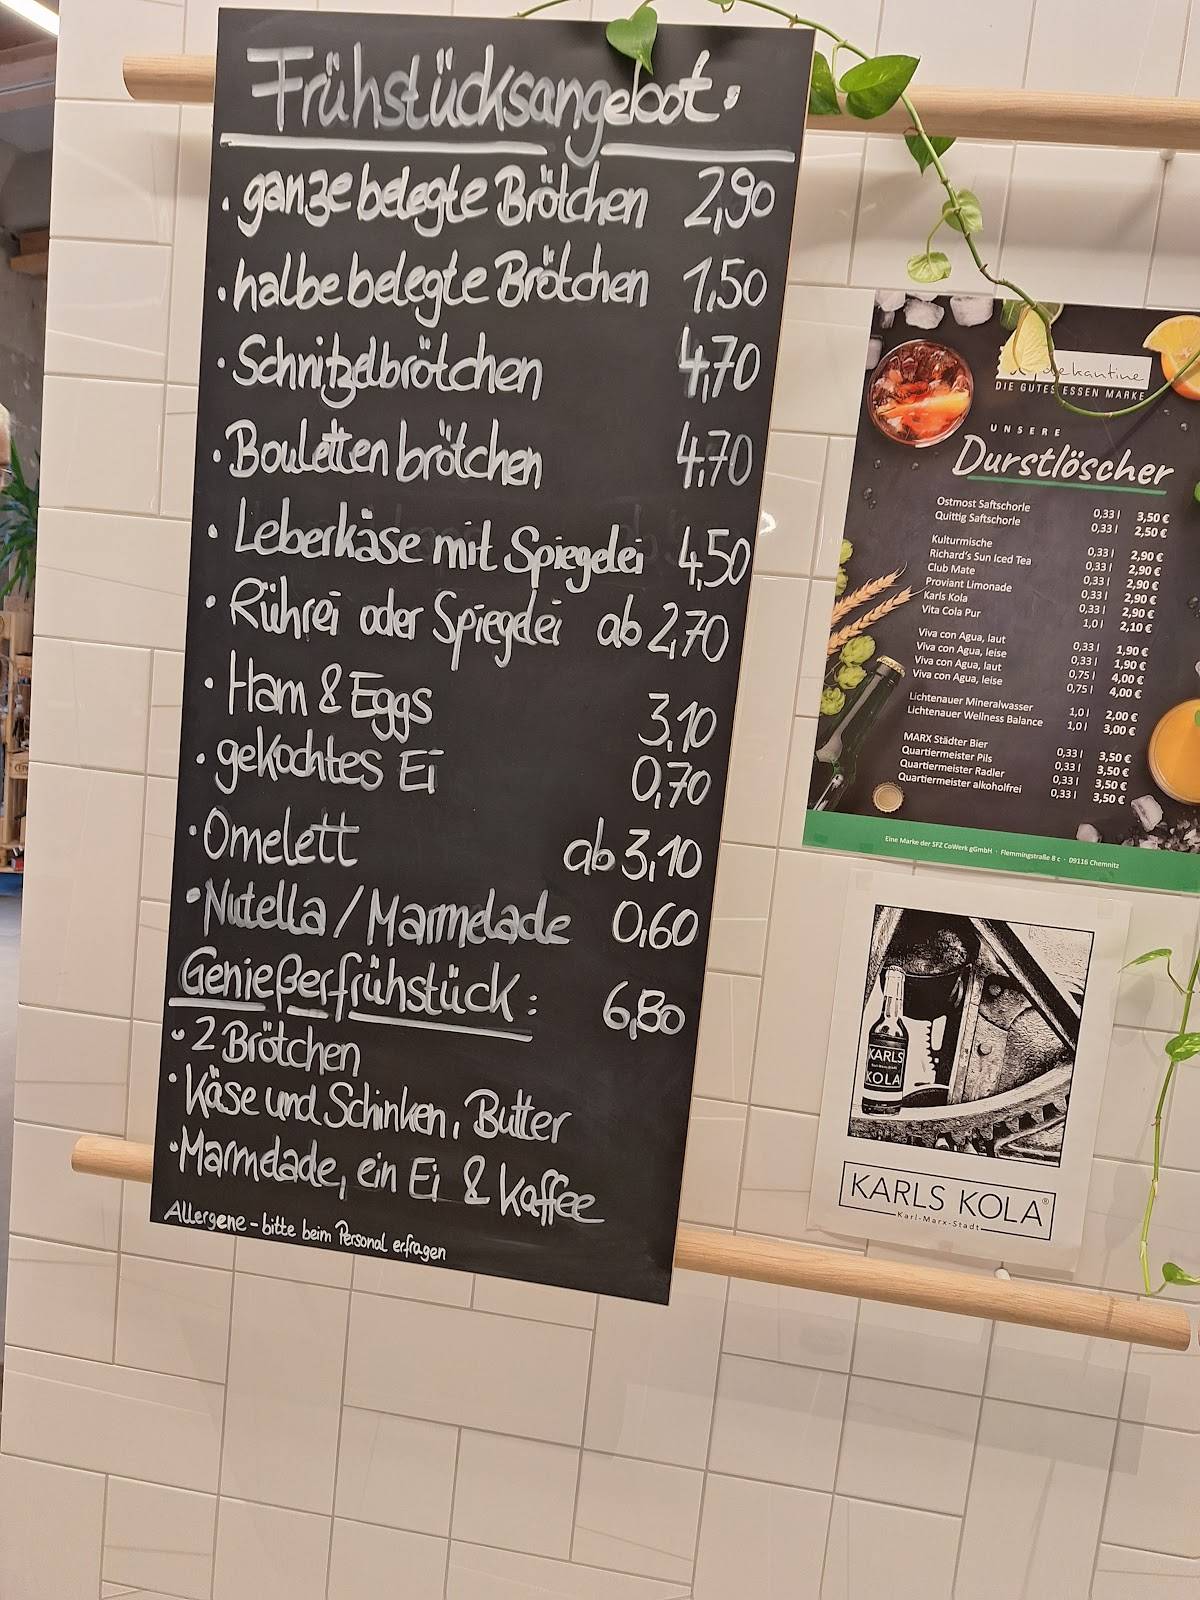 Frühstücksangebot:
• ganze belegte Brötchen 2,90
• halbe belegte Brötchen 1,50
• Schnitzelbrötchen 4,70
• Boulettenbrötchen 4,70
• Leberkäse mit Spiegelei 4,50
• Rührei oder Spiegelei ab 2,70
• Ham & Eggs 3,10
• gekochtes Ei 0,70
• Omelett ab 3,10
• Nutella / Marmelade 0,60
Genießerfrühstück: 6,80
• 2 Brötchen
• Käse und Schinken, Butter
• Marmelade, ein Ei & Kaffee
Allergene - bitte beim Personal erfragen
die kantine
DIE GUTES ESSEN MARKE
UNSERE
Durstlöscher
Ostmost Saftschorle 0,33 l 3,50 €
Quittig Saftschorle 0,33 l 2,50 €
Kulturmische 0,33 l 2,90 €
Richard's Sun Iced Tea 0,33 l 2,90 €
Club Mate 0,33 l 2,90 €
Proviant Limonade 0,33 l 2,90 €
Karls Kola 0,33 l 2,90 €
Vita Cola Pur 1,0 l 2,10 €
Viva con Agua, laut 0,33 l 1,90 €
Viva con Agua, leise 0,33 l 1,90 €
Viva con Agua, laut 0,75 l 4,00 €
Viva con Agua, leise 0,75 l 4,00 €
Lichtenauer Mineralwasser 1,0 l 2,00 €
Lichtenauer Wellness Balance 1,0 l 3,00 €
MARX Städter Bier 0,33 l 3,50 €
Quartiermeister Pils 0,33 l 3,50 €
Quartiermeister Radler 0,33 l 3,50 €
Quartiermeister alkoholfrei 0,33 l 3,50 €
Eine Marke der SFZ CoWerk gGmbH · Flemmingstraße 8 c · 09116 Chemnitz
KARLS
KOLA
KARLS KOLA®
Karl-Marx-Stadt